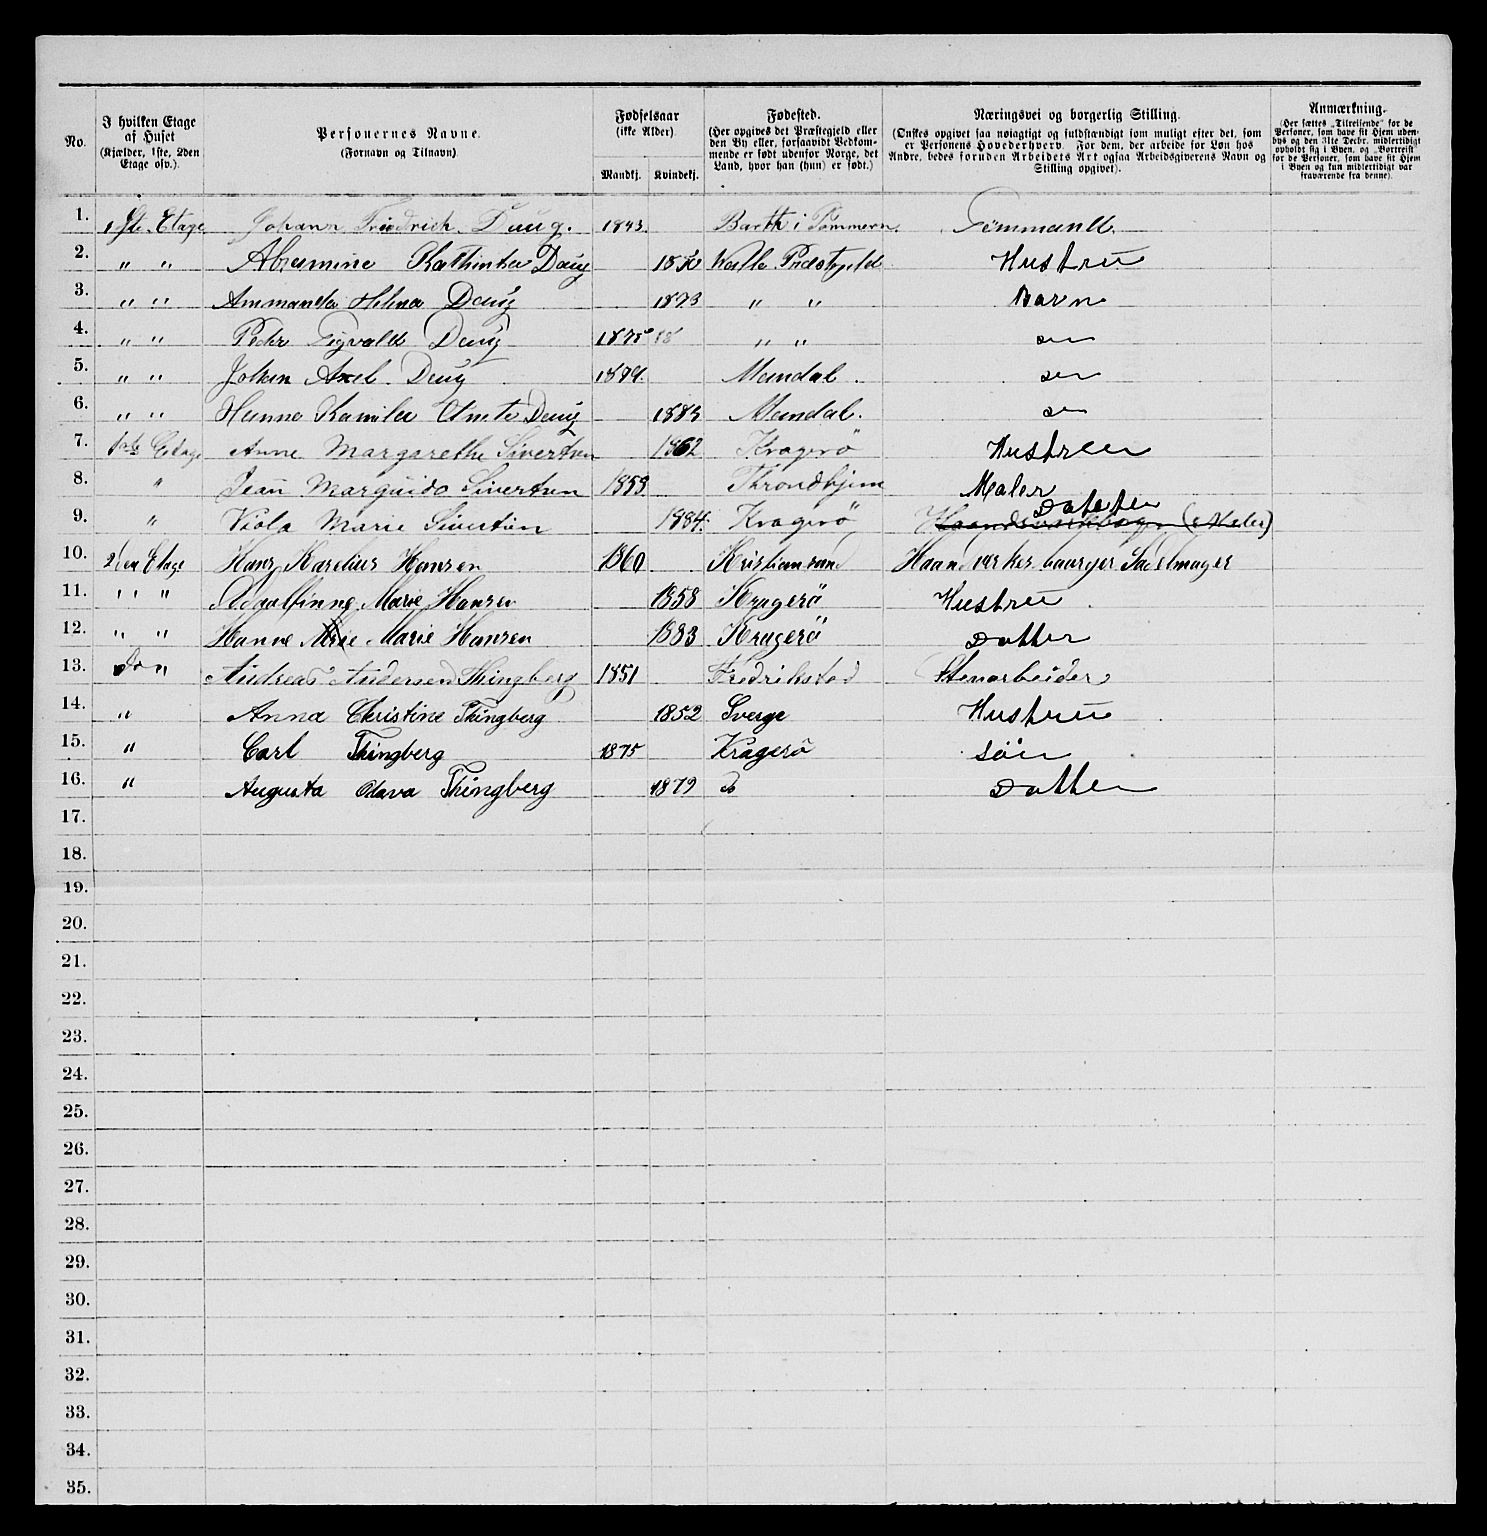 No.
I hvilken Etage af Huset (Kjælder, 1ste, 2den Etage osv.).
Personernes Navne. (Fornavn og Tilnavn)
Fødselsaar (ikke Alder)
Mandkj. Kvindekj.
Fødested. (Her opgives det Præstegjeld eller den By eller, forsaavidt Vedkommende er født udenfor Norge, det Land, hvor han (hun) er født.)
Næringsvei og borgerlig Stilling. (Ønskes opgivet saa nøiagtigt og fuldstændigt som muligt efter det, som er Personens Hovederhverv. For dem, der arbeide for Løn hos Andre, bedes foruden Arbeidets Art ogsaa Arbeidsgiverens Navn og Stilling opgivet).
Anmærkning. (Her sættes „Tilreisende" for de Personer, som have sit Hjem udenbys og den 31te Decbr. midlertidigt opholdt sig i Byen, og „Bortreist" for de Personer, som have sit Hjem i Byen og kun midlertidigt var fraværende fra denne).
1. 1ste Etage Johann Friedrich Daug. 1843. Barth i Pommern. Tømmand
2. " " Abramine Kathinka Daug Halle Præstegjeld Hustru
3. " " Ammanda Helena Daug 1873 " " Barn
4. " " Peder Sigvald Daug 1875 " "
5. " " Johan Axel Daug 1879. Mandal.
6. " " Hanna Kamilla Daug 1883 Mandal.
7. 1ste Etage Anne Margarethe Sivertsen 1862 Kragerö Hustru
8. " Jean Marquido Sivertsen 1853 Throndhjem Maler
9. " Viola Marie Sivertsen 1884. Kragerö Datter (Maler)
10. 2den Etage Hans Karelius Hansen 1860 Kristiansand Haandværkerbaarger Sadelmager
11. " " Adaalfinne Marie Hansen 1858 Kragerö Hustru
12. " " Hanne Marie Hansen 1883 Kragerö Datter
13. do " Andreas Andersen Thingberg 1851 Fredrikstad Stenarbeider
14. " Anna Christine Thingberg 1852 Sverge Hustru
15. " Carl Thingberg 1875 Kragerö Søn
16. " Augusta Olava Thingberg 1879 do Datter
17.
18.
19.
20.
21.
22.
23.
24.
25.
26.
27.
28.
29.
30.
31.
32.
33.
34.
35.